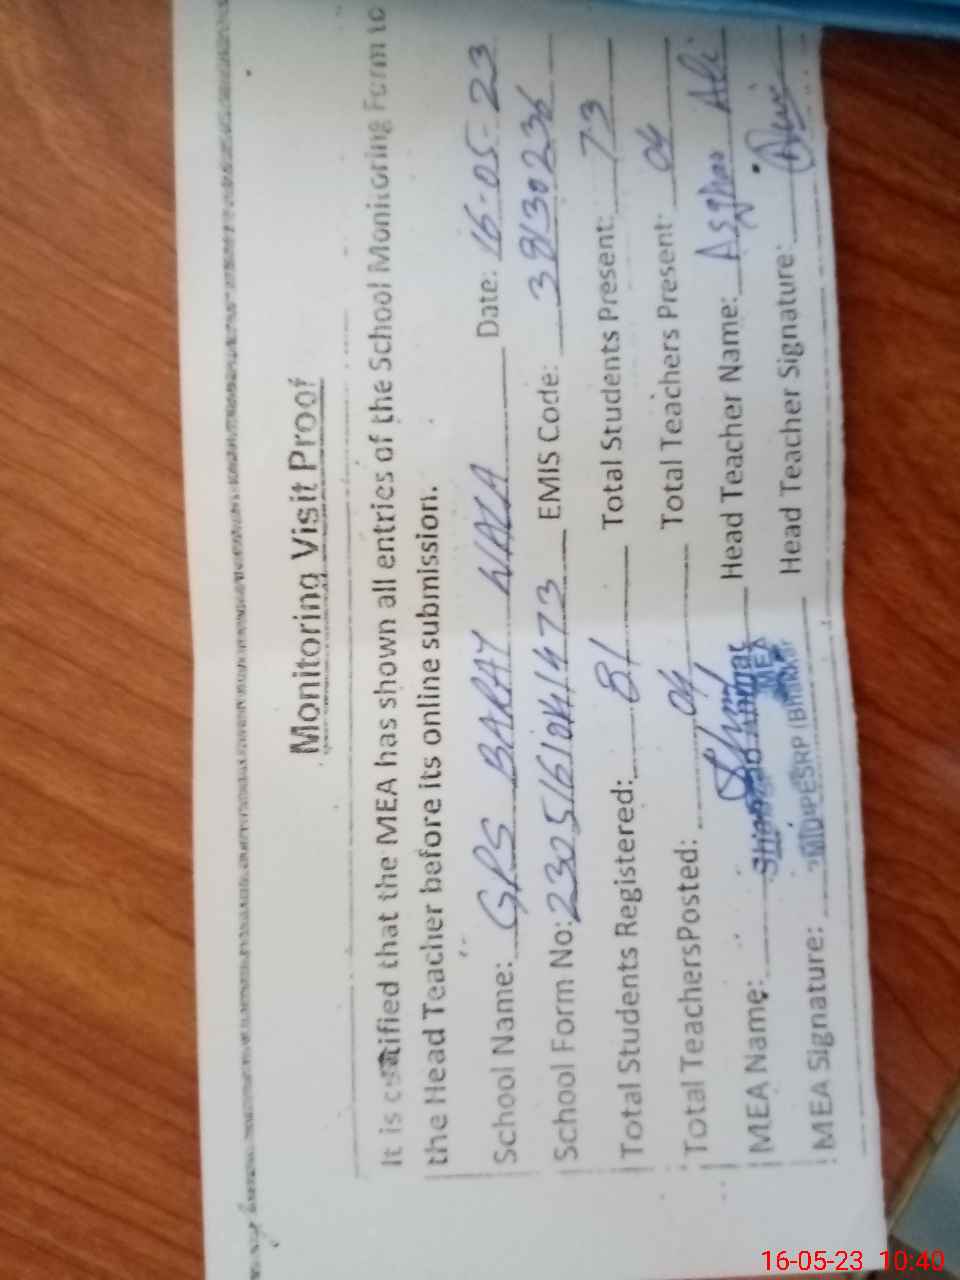 Monitoring Visit Proof
It is certified that the MEA has shown all entries of the School Monitoring Form to
the Head Teacher before its online submission.
School Name: GPS BARAY WALA Date: 16-05-23
School Form No: 23051610414173 EMIS Code: 38130236
Total Students Registered: 81 Total Students Present: 73
Total Teachers Posted: 04 Total Teachers Present: 04
MEA Name: Head Teacher Name: Asghar Ali
MEA
MEA Signature: PESRP Head Teacher Signature:
16-05-23 10:40